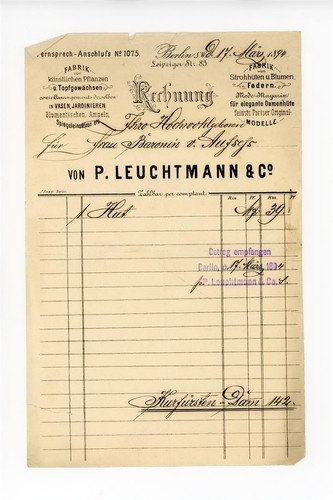 Fernsprech-Anschluss No 1075.
Berlin S. d. 17. März 1894
Leipziger Str. 83.
FABRIK
von
künstlichen Pflanzen
u. Topfgewächsen
IN VASEN, JARDINIEREN
Blumentischen, Ampeln,
FABRIK
von
Strohhüten u. Blumen,
Federn.
Mode-Magazin
für elegante Damenhüte
feinste Pariser Original-
MODELLE.
Rechnung
Ihro Hochwohlgeboren
für Frau Baronin v. Aufseß
VON P. LEUCHTMANN & Co
Zahlbar per comptant.
Rm. Pf. Rm. Pf.
1 Hut 39
Betrag empfangen
Berlin, d. 17. März 1894
P. Leuchtmann & Co.
Kurfürsten-Dam 142.